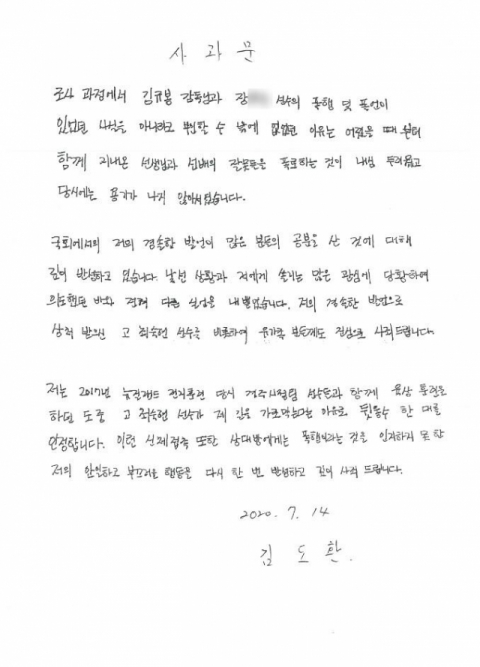 사과문
조사 과정에서 김규봉 감독님과 장 선수의 폭행 및 폭언이
있었던 사실을 아니라고 부인할 수 밖에 없었던 이유는 어렸을 때 부터
함께 지내온 선생님과 선배의 잘못들을 폭로하는 것이 내심 두려웠고
당시에는 용기가 나지 않아서였습니다.
국회에서의 저의 경솔한 발언이 많은 분들의 공분을 산 것에 대해
깊이 반성하고 있습니다. 낯선 상황과 저에게 쏠리는 많은 관심에 당황하여
의도했던 바와 전혀 다른 실언을 내뱉었습니다. 저의 경솔한 발언으로
상처 받으신 고 최숙현 선수를 비롯하여 유가족 분들께도 진심으로 사죄드립니다.
저는 2017년 뉴질랜드 전지훈련 당시 경주시청팀 선수들과 함께 육상 훈련을
하던 도중 고 최숙현 선수가 제 길을 가로막는다는 이유로 뒷통수 한 대를
인정합니다. 이런 신체접촉 또한 상대방에게는 폭행이라는 것을 인지하지 못 한
저의 안일하고 부끄러운 행동을 다시 한 번 반성하고 깊이 사죄 드립니다.
2020. 7. 14
김도환.